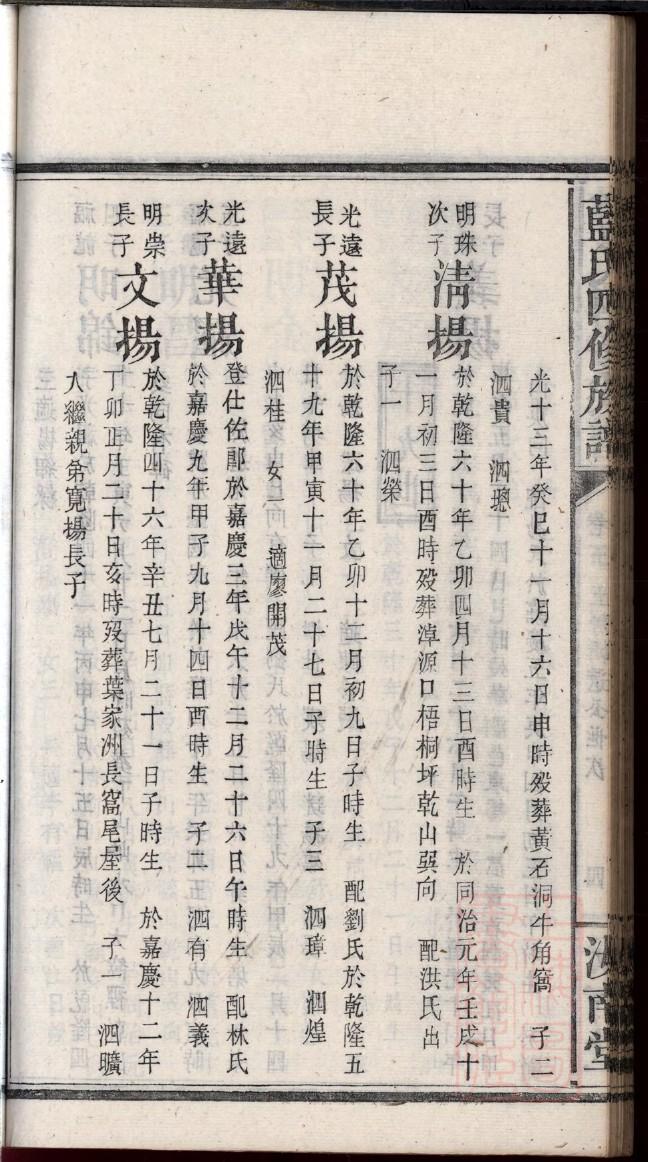 藍氏四修族譜
汝南堂
光十三年癸巳十一月十六日申時歿葬黃石洞牛角窩 子二
泗貴 泗璁
明珠次子 清揚 於乾隆六十年乙卯四月十三日酉時生 於同治元年壬戌十
一月初三日酉時歿葬漳源口梧桐坪乾山巽向 配洪氏出
子一 泗榮
光遠長子 茂揚 於乾隆六十年乙卯十二月初九日子時生 配劉氏於乾隆五
十九年甲寅十一月二十七日子時生 子三 泗璋 泗煌
泗桂 女一 適廖開茂
光遠次子 華揚 登仕佐郎於嘉慶三年戊午十二月二十六日午時生 配林氏
於嘉慶九年甲子九月十四日酉時生 子二 泗有 泗義
明崇長子 文揚 於乾隆四十六年辛丑七月二十一日子時生 於嘉慶十二年
丁卯正月二十日亥時歿葬葉家洲長窩尾屋後 子一 泗曠
入繼親弟寬揚長子